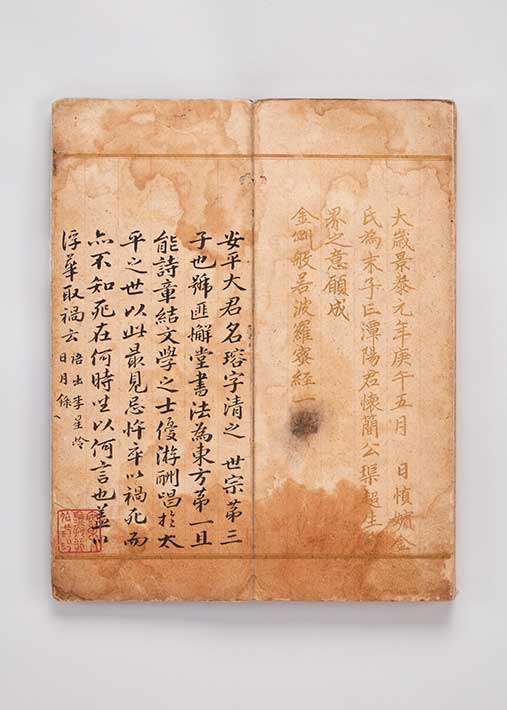 大歲景泰元年庚午五月 日慎嬪金
氏為末子亡潭陽君懷簡公璖超生
界之意願成
金剛般若波羅蜜經一
安平大君名瑢字清之 世宗第三
子也號匪懈堂書法為東方第一且
能詩章結文學之士優游酬唱於太
平之世以此最見忌忤卒以禍死而
亦不知死在何時坐以何言也蓋以
浮華取禍云
語出李星岭
日月錄